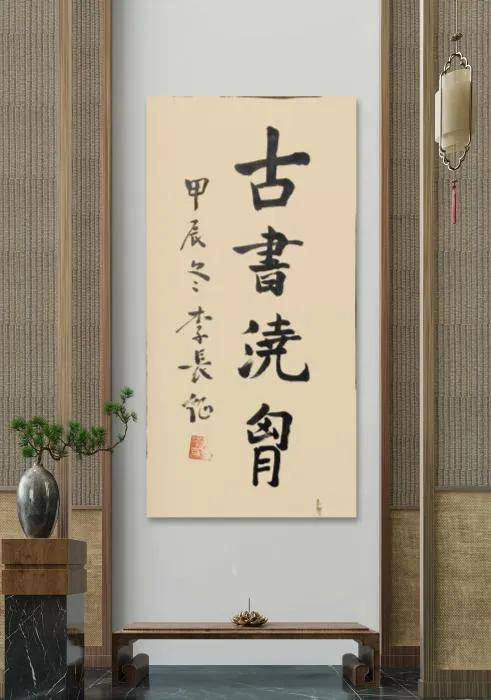 古書澆胷
甲辰冬李長征